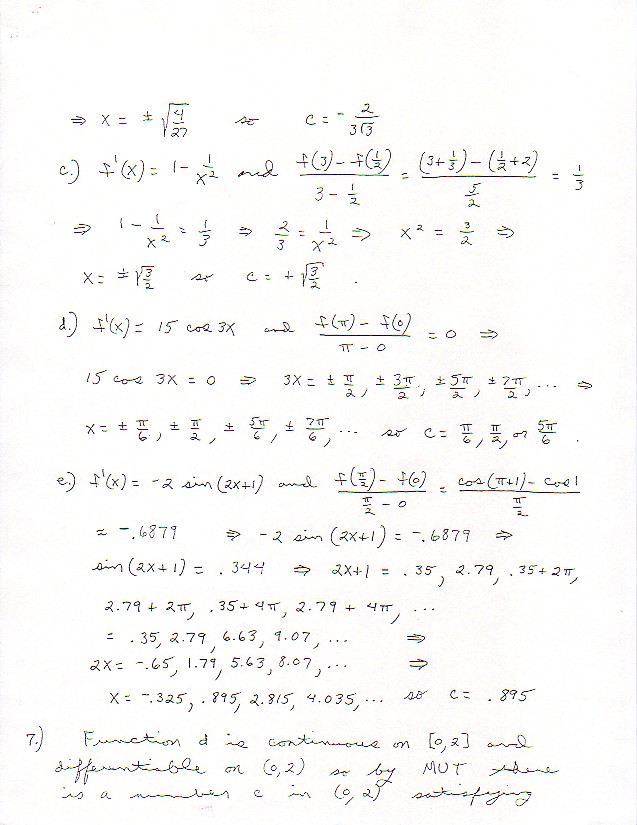 ⇒ x = ± √(4/27) so c = - 2/(3√3)
c.) f'(x) = 1 - 1/x² and (f(3) - f(1/2))/(3 - 1/2) = ((3 + 1/3) - (1/2 + 2))/(5/2) = 1/3
⇒ 1 - 1/x² = 1/3 ⇒ 2/3 = 1/x² ⇒ x² = 3/2 ⇒
x = ± √(3/2) so c = + √(3/2) .
d.) f'(x) = 15 cos 3x and (f(π) - f(0))/(π - 0) = 0 ⇒
15 cos 3x = 0 ⇒ 3x = ± π/2, ± 3π/2, ± 5π/2, ± 7π/2, ... ⇒
x = ± π/6, ± π/2, ± 5π/6, ± 7π/6, ... so c = π/6, π/2, or 5π/6 .
e.) f'(x) = -2 sin(2x+1) and (f(π/2) - f(0))/(π/2 - 0) = (cos(π+1) - cos 1)/(π/2)
≈ -.6879 ⇒ -2 sin(2x+1) = -.6879 ⇒
sin(2x+1) = .344 ⇒ 2x+1 = .35, 2.79, .35+2π,
2.79 + 2π, .35+4π, 2.79 + 4π, ...
= .35, 2.79, 6.63, 9.07, ... ⇒
2x = -.65, 1.79, 5.63, 8.07, ... ⇒
x = -.325, .895, 2.815, 4.035, ... so c = .895
7.) Function d is continuous on [0,2] and
differentiable on (0,2) so by MVT there
is a number c in (0,2) satisfying